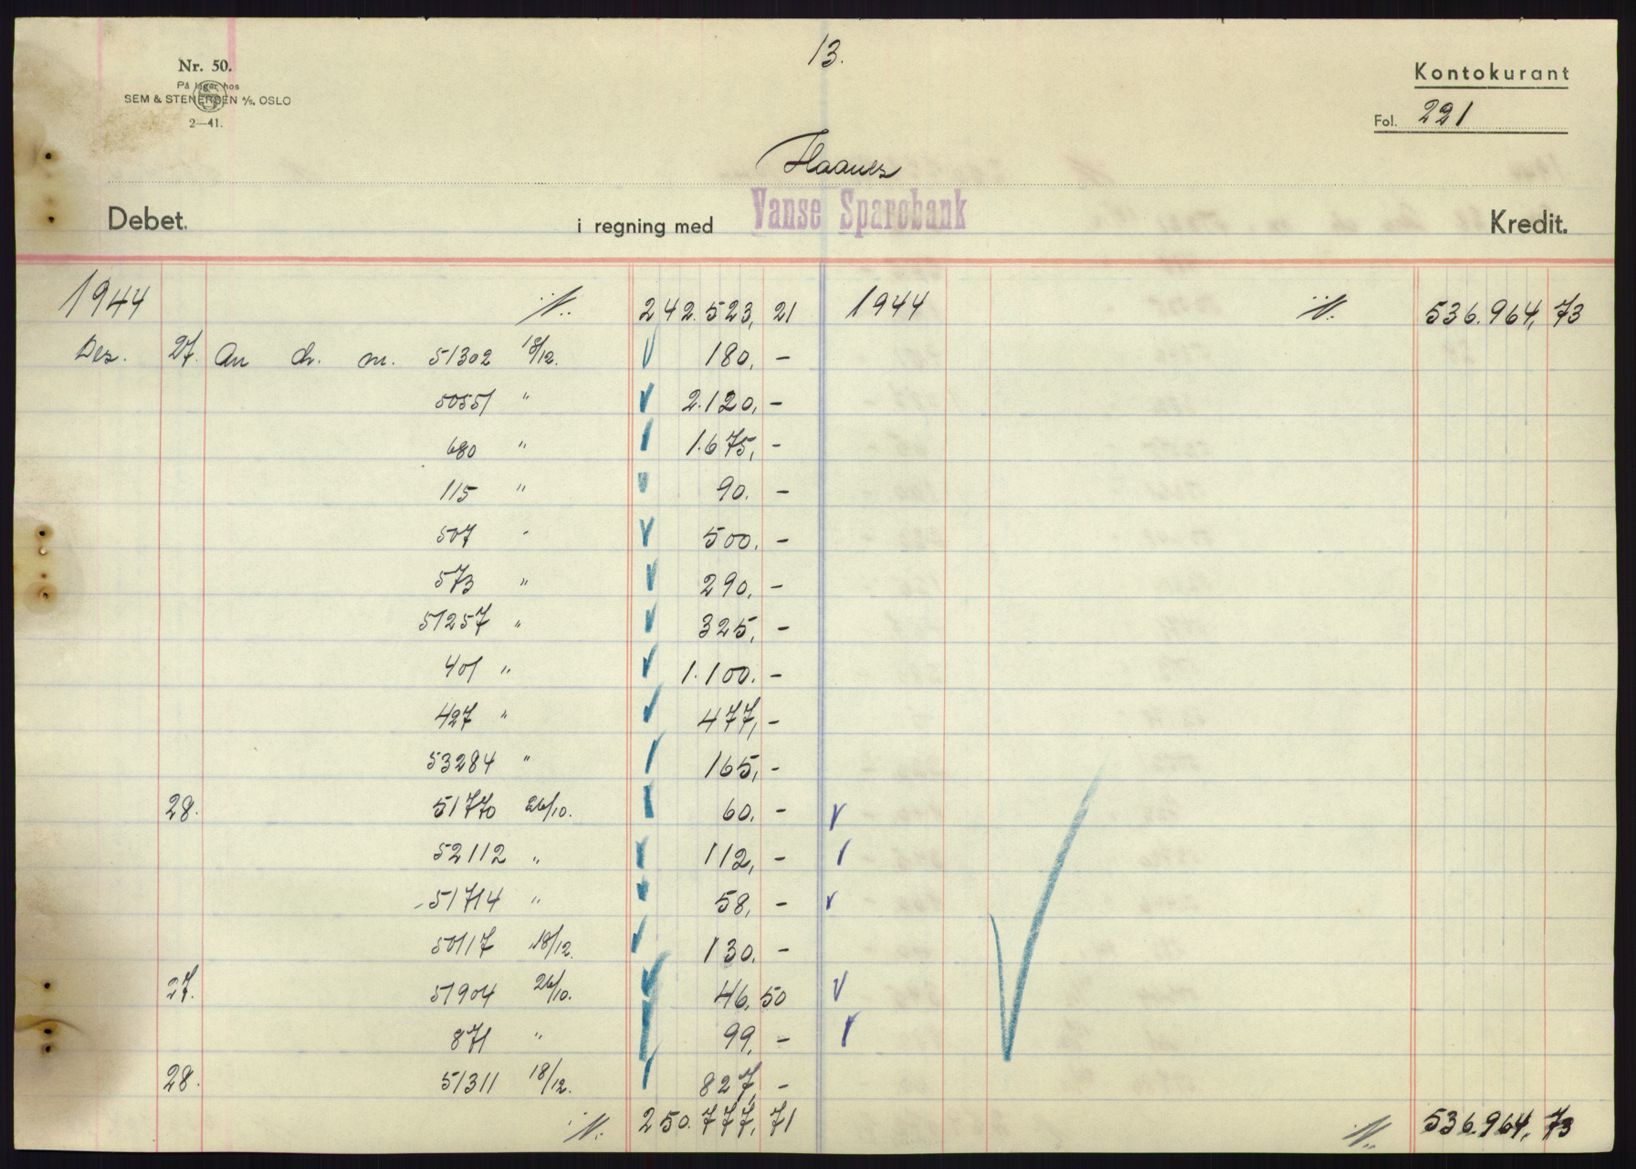 13.
Nr. 50.
På lager hos
SEM & STENERSEN A/S, OSLO
2—41.
Kontokurant
Fol. 221
Haanes
Debet. i regning med Vanse Sparebank Kredit.
1944 242.523,21 1944 536.964,73
Des. 27. An ch. m. 51302 18/12. 180,-
50551 " 2.120,-
680 " 1.675,-
115 " 90.-
507 " 500.-
573 " 290,-
51257 " 325,-
401 " 1.100.-
427 " 477,-
53284 " 165,-
28. 51770 26/10. 60.-
52112 " 112,-
51714 " 58,-
50117 18/12. 130.-
27. 51904 26/10. 46,50
871 " 99,-
28. 51311 18/12. 827,-
250.777,71 536.964,73